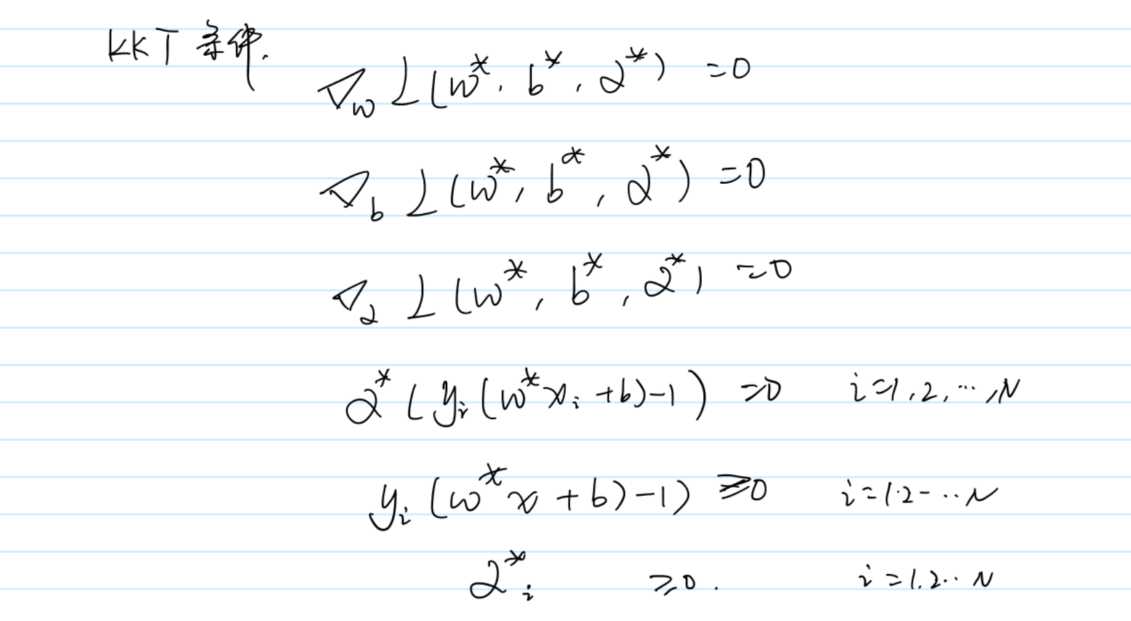 KKT 条件.
∇_w L(w*, b*, α*) = 0
∇_b L(w*, b*, α*) = 0
∇_α L(w*, b*, α*) = 0
α*(y_i(w*x_i + b) - 1) = 0 i = 1, 2, ..., N
y_i(w*x + b) - 1) ≥ 0 i = 1.2 - ... N
α*_i ≥ 0. i = 1.2.. N